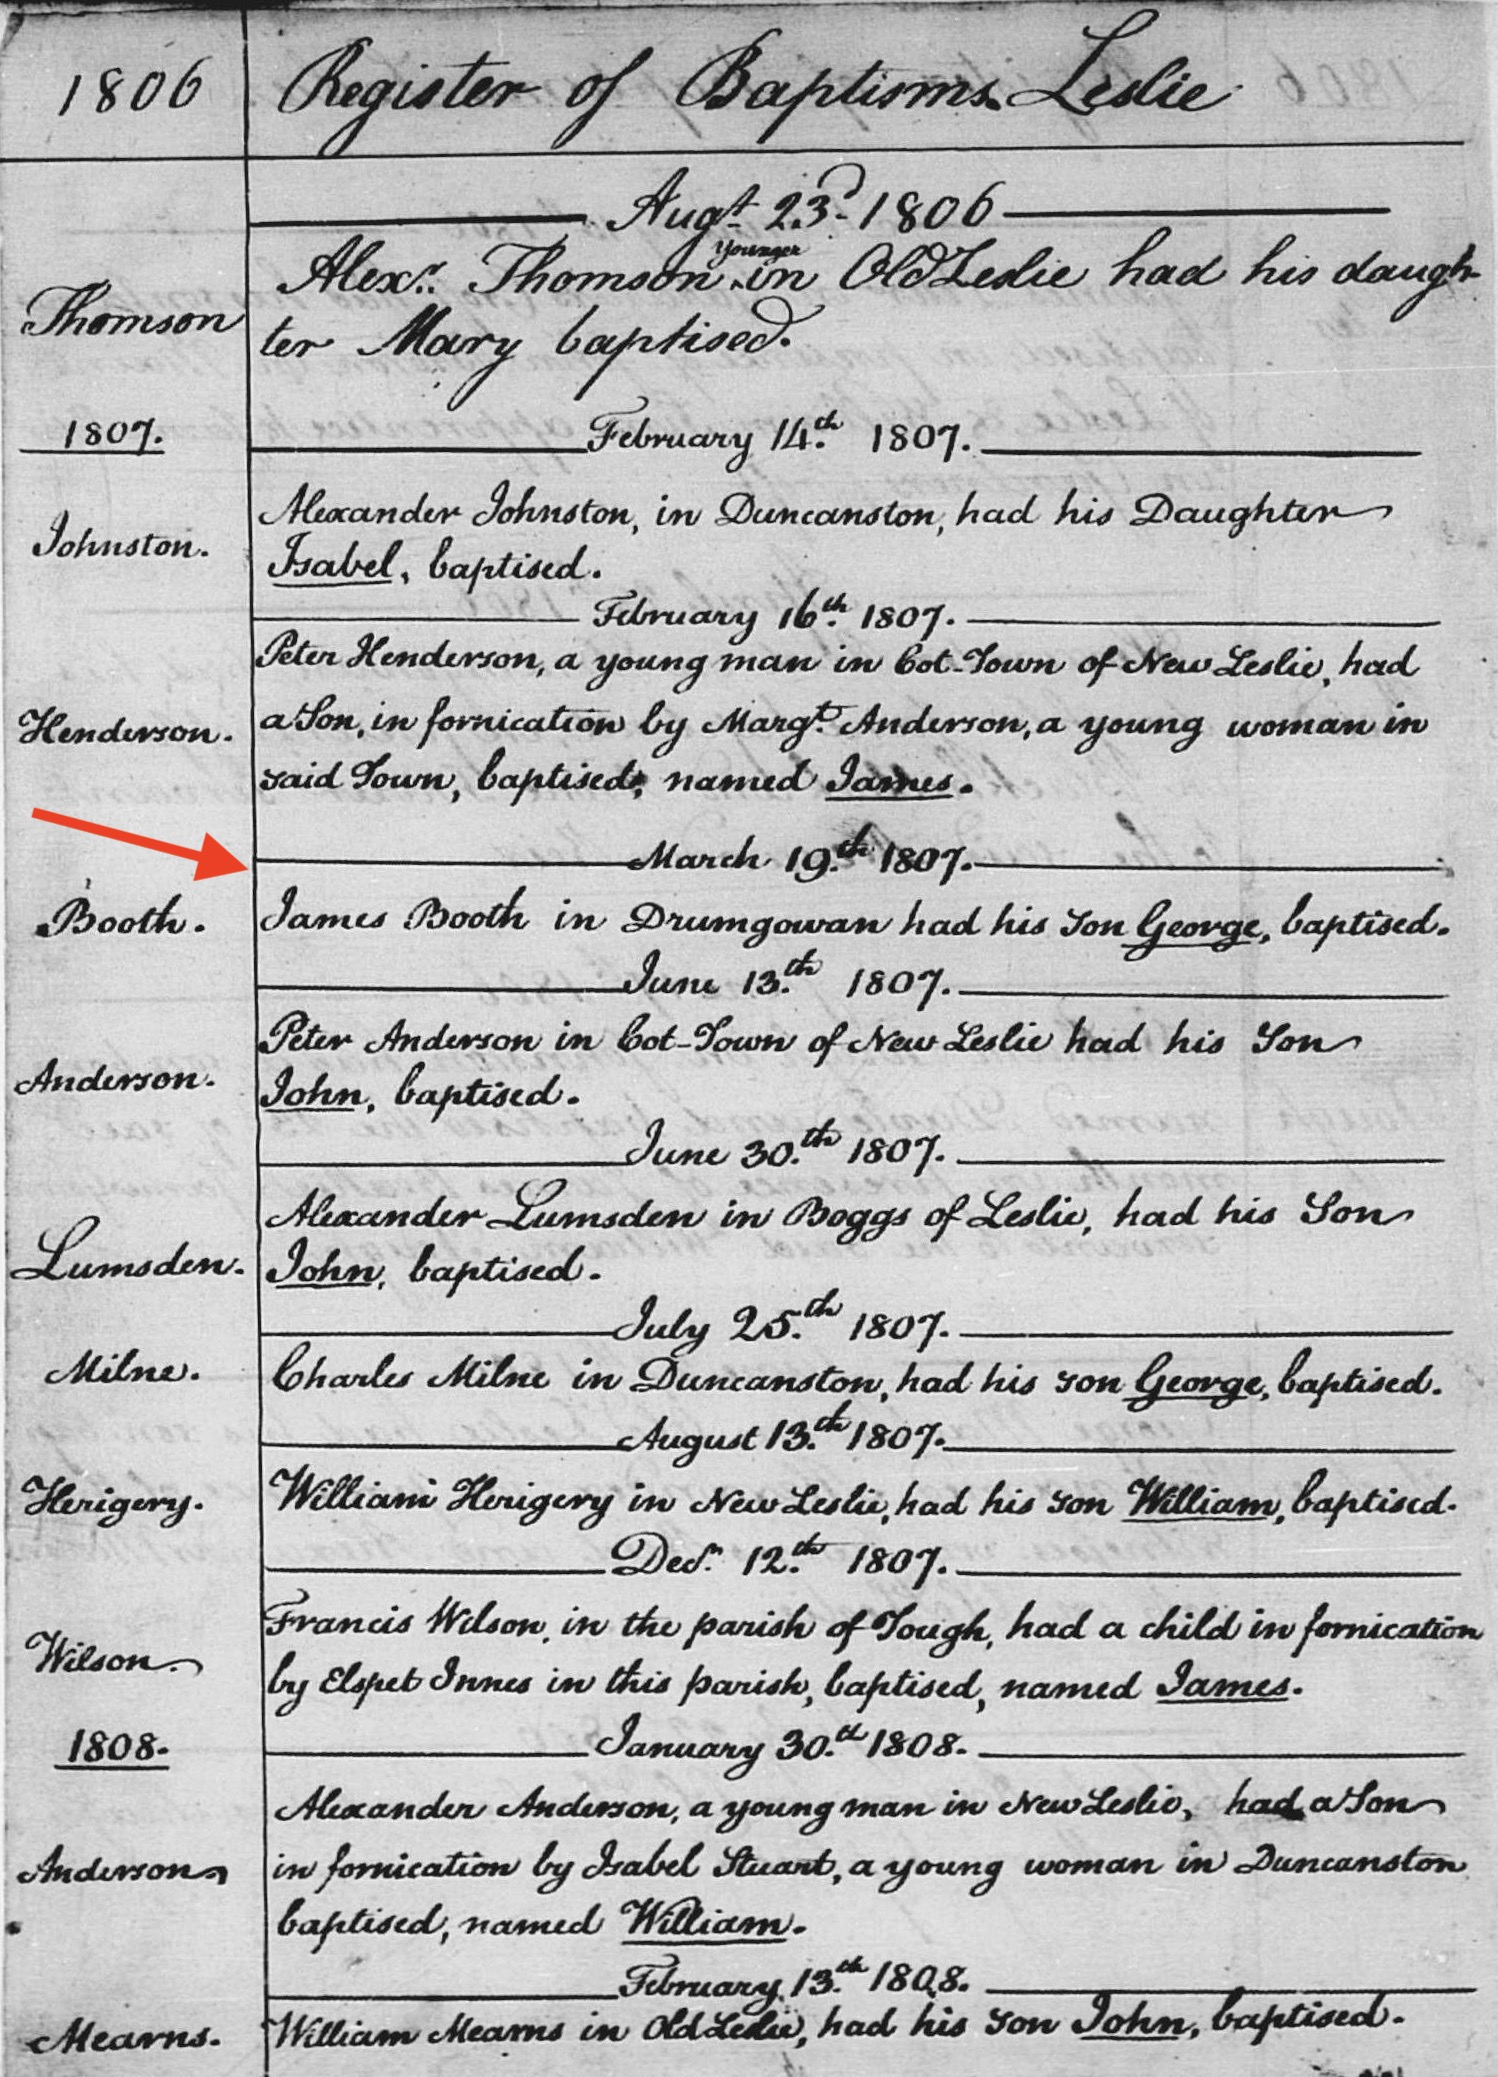 1806 Register of Baptisms Leslie
Augt. 23d. 1806
younger
Alexr. Thomson in Old Leslie had his daugh-
Thomson
ter Mary baptised.
1807.
February 14.th 1807.
Alexander Johnston, in Duncanston, had his Daughter
Johnston.
Isabel, baptised.
February 16.th 1807.
Peter Henderson, a young man in Cot-Town of New Leslie, had
Henderson.
a Son, in fornication by Margt. Anderson, a young woman in
said Town, baptised, named James.
March 19.th 1807.
Booth.
James Booth in Drumgowan had his son George, baptised.
June 13.th 1807.
Peter Anderson in Cot-Town of New Leslie had his Son
Anderson.
John, baptised.
June 30.th 1807.
Alexander Lumsden in Boggs of Leslie, had his Son
Lumsden.
John, baptised.
July 25.th 1807.
Milne.
Charles Milne in Duncanston, had his son George, baptised.
August 13.th 1807.
Herigery.
William Herigery in New Leslie, had his son William, baptised.
Decr. 12.th 1807.
Francis Wilson, in the parish of Tough, had a child in fornication
Wilson.
by Elspet Innes in this parish, baptised, named James.
1808.
January 30.d 1808.
Alexander Anderson, a young man in New Leslie, had a Son
Anderson
in fornication by Isabel Stuart, a young woman in Duncanston
baptised, named William.
February 13.th 1808.
Mearns.
William Mearns in Old Leslie, had his son John, baptised.